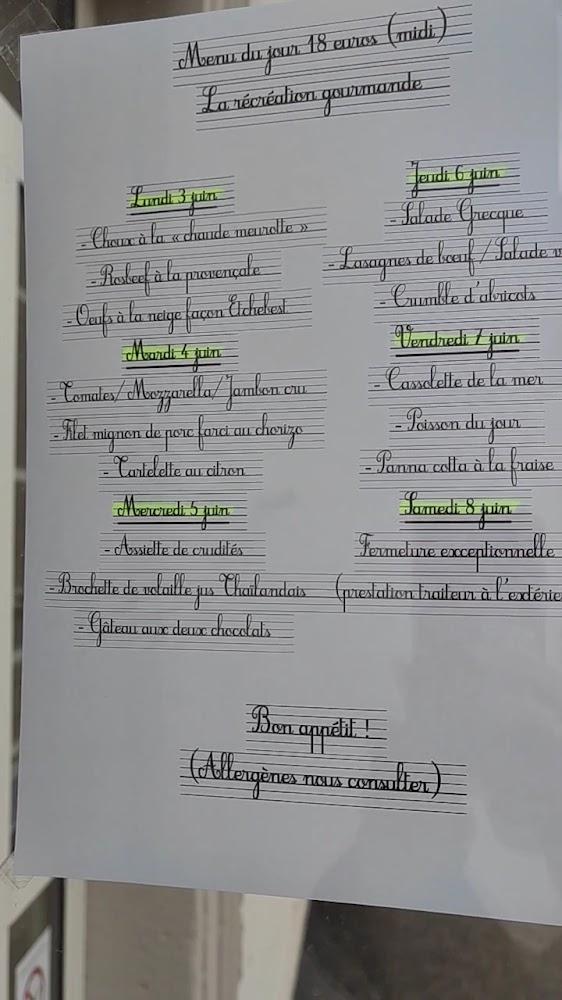 Menu du jour 18 euros (midi)
La récréation gourmande
Lundi 3 juin
- Choux à la « chaude meurotte »
- Rosbeef à la provençale
- Oeufs à la neige façon Etchebest
Mardi 4 juin
- Tomates/Mozzarella/Jambon cru
- Filet mignon de porc farci au chorizo
- Tartelette au citron
Mercredi 5 juin
- Assiette de crudités
- Brochette de volaille jus Thaïlandais
- Gâteau aux deux chocolats
Jeudi 6 juin
- Salade Grecque
- Lasagnes de bœuf / Salade v
- Crumble d'abricots
Vendredi 7 juin
- Cassolette de la mer
- Poisson du jour
- Panna cotta à la fraise
Samedi 8 juin
Fermeture exceptionnelle
(prestation traiteur à l'extérie
Bon appétit !
(Allergènes nous consulter)